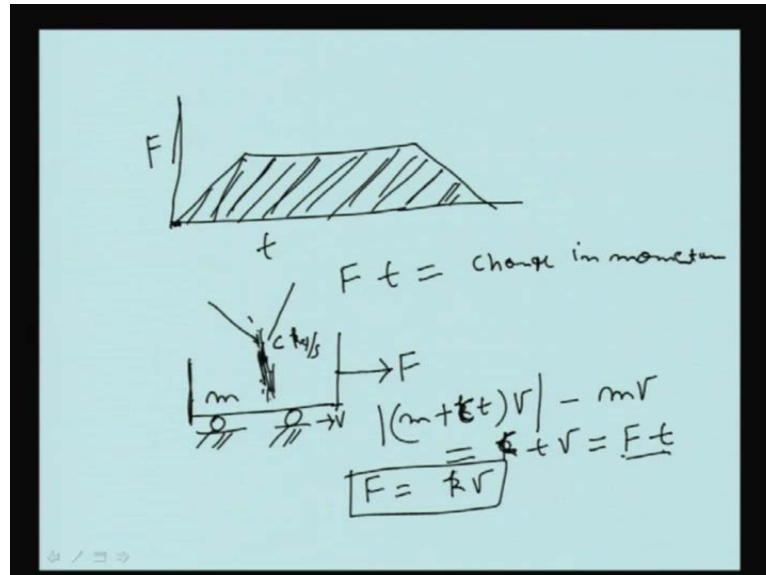 F
t
F t = change in momentum
c kg/s
m
→ F
→ V
|(m+ct)V| - mV
= k t V = F t
F = kV